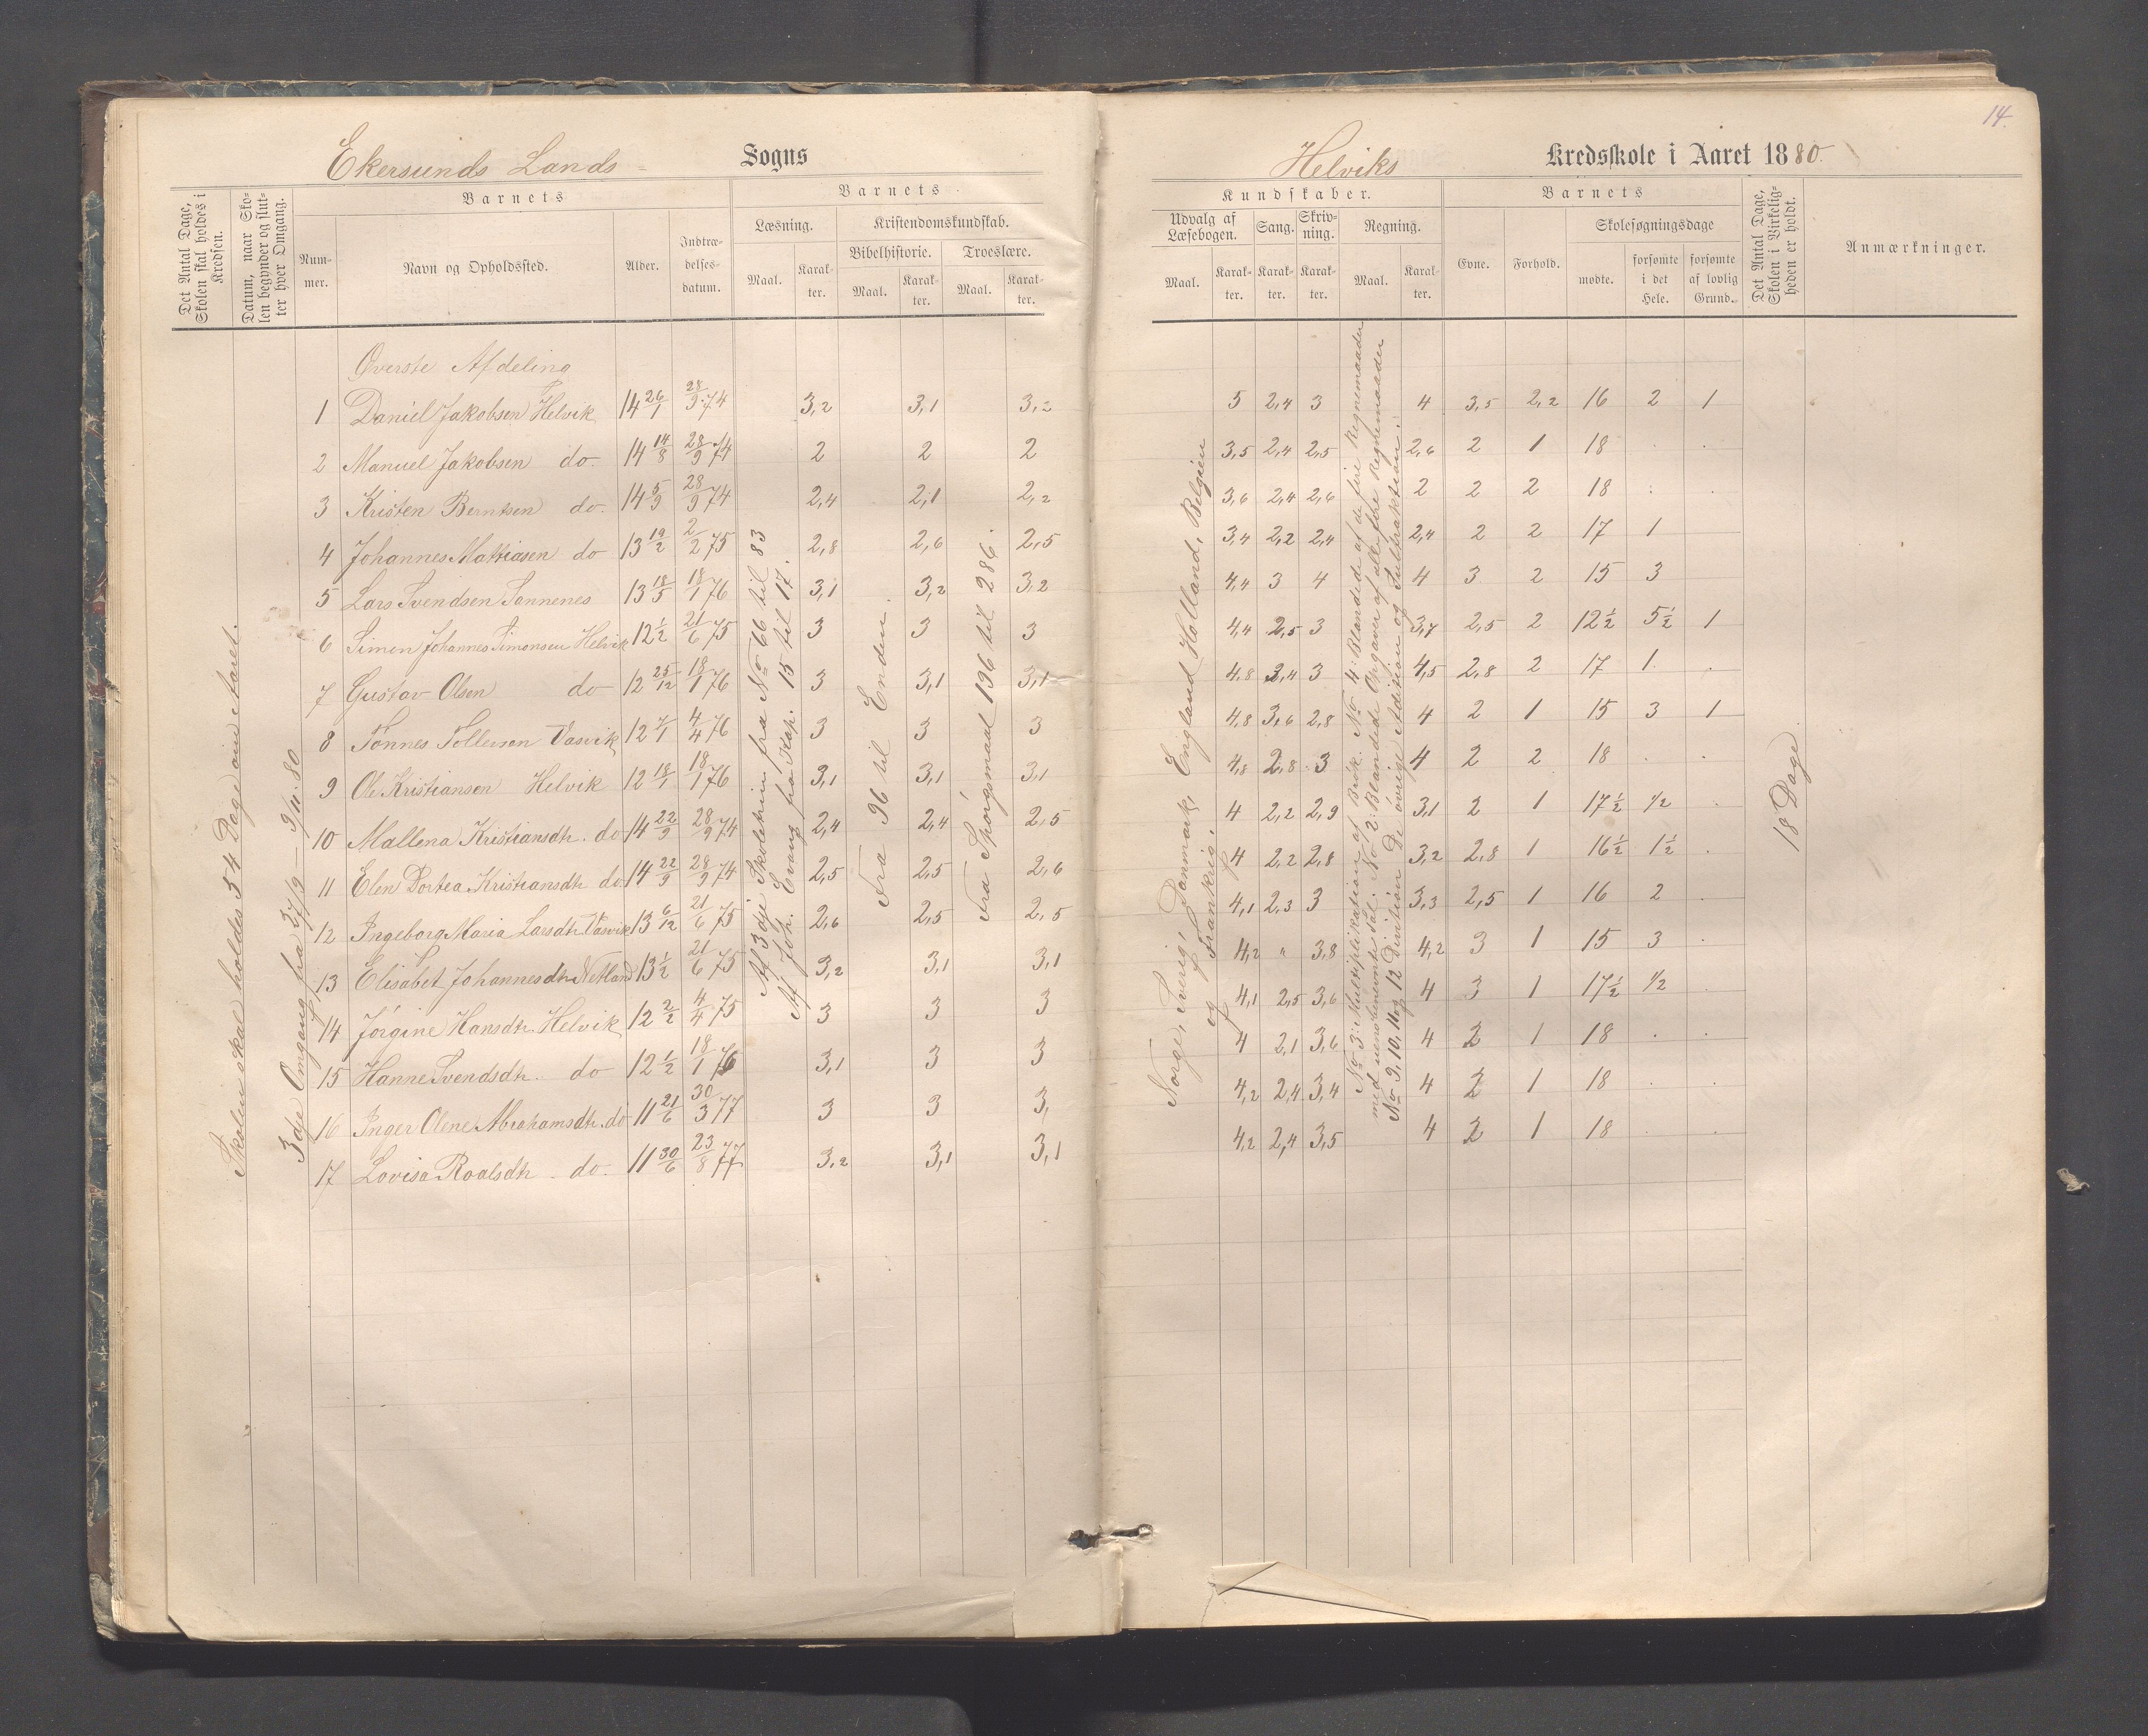 14.
Ekersunds Lands- Sogns
Helviks Kredsskole i Aaret 1880.
Det Antal Dage, Skolen skal holdes i Kredsen.
Datum, naar Skolen begynder og slutter hver Omgang.
Barnets
Nummer.
Navn og Opholdssted.
Alder.
Indtrædelsesdatum.
Barnets
Læsning.
Maal.
Karakter.
Kristendomskundskab.
Bibelhistorie.
Maal.
Karakter.
Troeslære.
Maal.
Karakter.
Kundskaber.
Udvalg af Læsebogen.
Maal.
Karakter.
Sang.
Karakter.
Skrivning.
Karakter.
Regning.
Maal.
Karakter.
Barnets
Evne.
Forhold.
Skolesøgningsdage
mødte.
forsømte i det Hele.
forsømte af lovlig Grund.
Det Antal Dage, Skolen i Virkeligheden er holdt.
Anmærkninger.
Skolen skal holdes 54 Dage om Aaret.
3dje Omgang fra 27/9 — 9/11. 80
Øverste Afdeling
1 Daniel Jakobsen Helvik 14 26/1 28/9 74 3,2 3,1 3,2 5 2,4 3 4 3,5 2,2 16 2 1
2 Manuel Jakobsen do. 14 14/8 28/9 74 2 2 2 3,5 2,4 2,5 2,6 2 1 18 . .
3 Kristen Berntsen do. 14 5/9 28/9 74 2,4 2,1 2,2 3,6 2,4 2,6 2 2 2 18 . .
4 Johannes Mathiasen do 13 19/2 2/2 75 2,8 2,6 2,5 3,4 2,2 2,4 2,4 2 2 17 1
5 Lars Svendsen Sonnenes 13 18/5 18/1 76 3,1 3,2 3,2 4,4 3 4 4 3 2 15 3
6 Simon Johannes Simonsen Helvik 12 1/2 21/6 75 3 3 3 4,4 2,5 3 3,7 2,5 2 12 1/2 5 1/2 1
7 Gustav Olsen do 12 25/12 18/1 76 3 3,1 3,1 4,8 2,4 3 4,5 2,8 2 17 1 .
8 Tønnes Tollesen Vasvik 12 7/1 4/4 76 3 3 3 4,8 3,6 2,8 4 2 1 15 3 1
9 Ole Kristiansen Helvik 12 18/1 18/1 76 3,1 3,1 3,1 4,8 2,8 3 4 2 2 18 . .
10 Mallena Kristiansdtr. do 14 22/9 28/9 74 2,4 2,4 2,5 4 2,2 2,9 3,1 2 1 17 1/2 1/2 .
11 Elen Dortea Kristiansdtr do. 14 22/9 28/9 74 2,5 2,5 2,6 4 2,2 2,8 3,2 2,8 1 16 1/2 1 1/2 .
12 Ingeborg Maria Larsdtr Vasvik 13 6/12 21/6 75 2,6 2,5 2,5 4,1 2,3 3 3,3 2,5 1 16 2 .
13 Elisabet Johannesdtr Netland 13 1/2 21/6 75 3,2 3,1 3,1 4,2 " 3,8 4,2 3 1 15 3 .
14 Jørgine Hansdtr Helvik 12 2/2 4/4 75 3 3 3 4,1 2,5 3,6 4 3 1 17 1/2 1/2 .
15 Hanne Svendsdtr. do 12 1/2 18/1 76 3,1 3 3 4 2,1 3,6 4 2 1 18 . .
16 Inger Olene Abrahamsdtr. do 11 21/6 30/3 77 3 3 3, 4,2 2,4 3,4 4 2 1 18 . .
17 Lovisa Roalsdtr. do. 11 30/6 23/8 77 3,2 3,1 3,1 4,2 2,4 3,5 4 2 1 18 . .
Af 3dje Skoletrin fra No 66 til 83
Af Joh. Evang. fra Kap. 15 til 17.
Fra 96 til Enden.
Fra Spørgsmaal 196 til 286.
Norge, Sverig, Danmark, England, Holland, Belgien
og Frankrig.
No 3: Multiplikation af Brøk. No 4: Blandede af de fire Regnemaader
med uensbenevnte Tal. No 2: Blandede Opgaver af alle fire Regnemaader
No 9, 10, 11 og 12 Division De øvrige Addition og Subtraktion.
18 Dage